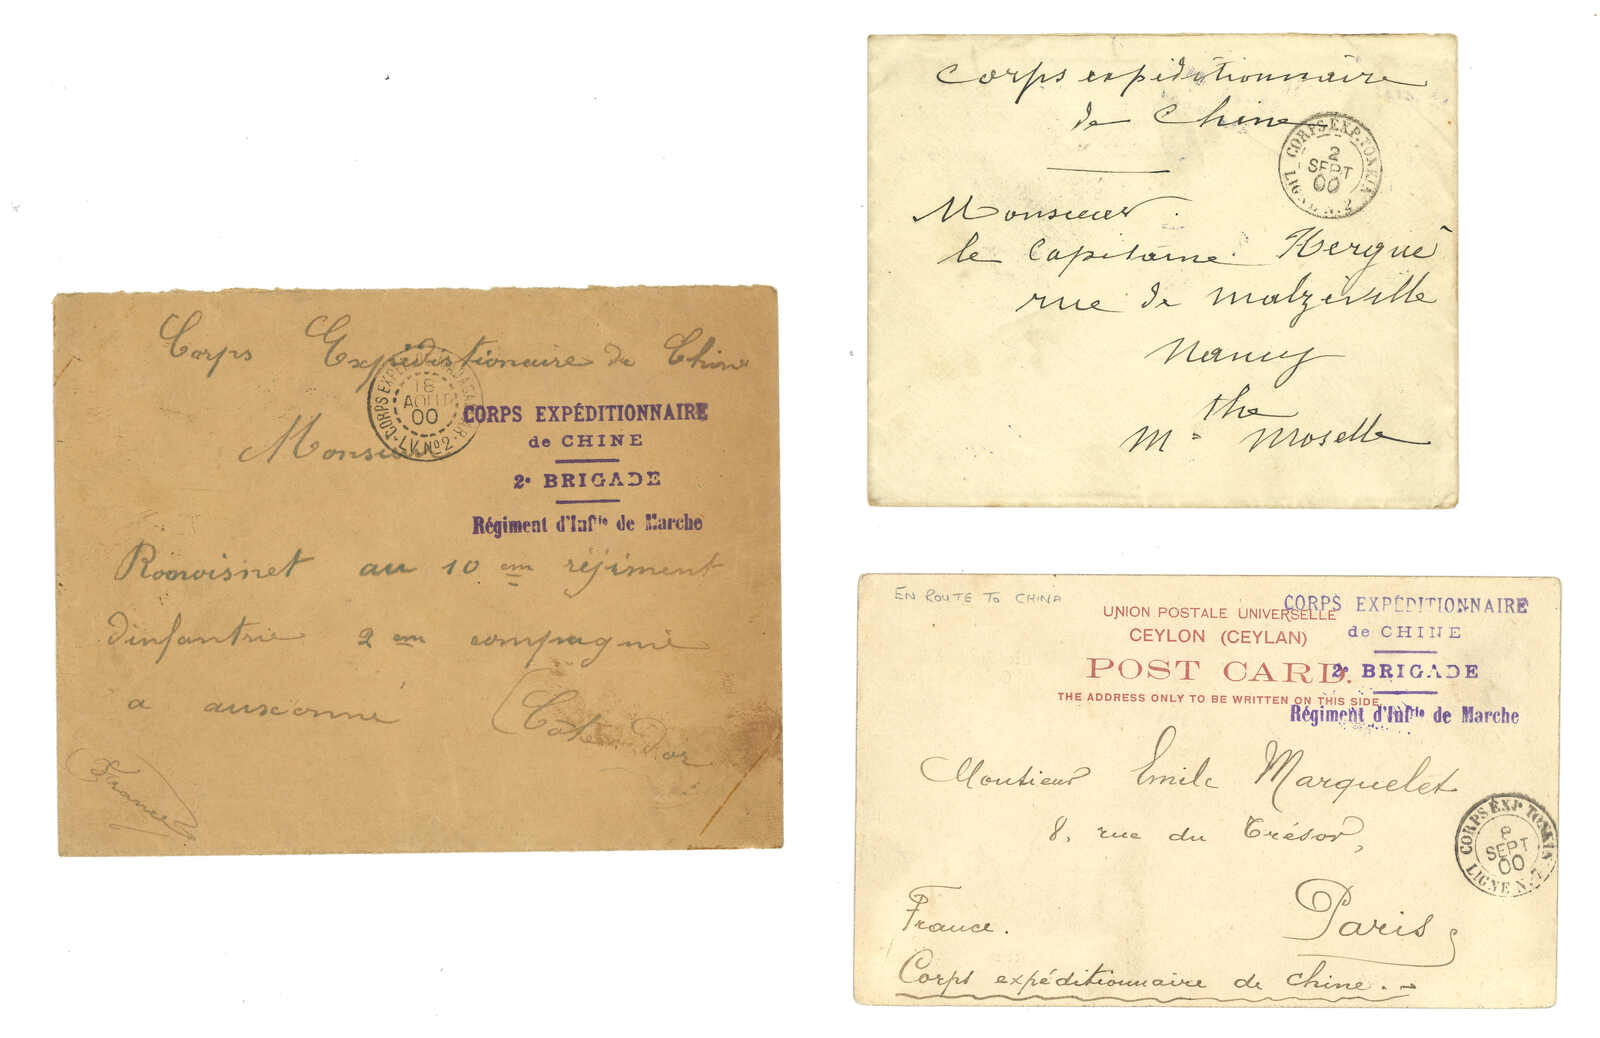 Corps Expédistionaire de Chine
18
AOUT
00
CORPS EXPÉDITIONNAIRE
de CHINE
2e BRIGADE
Régiment d'Inftie de Marche
Monsieur
au 10 em réjiment
dinfantrie 2 em compagnie
a auxonne (Cote D'or
France
corps expéditionnaire
de Chine
CORPS EXP. TONKIN
2
SEPT
00
LIGNE N. 2
Monsieur
le Capitaine Hergué
rue de Malzéville
Nancy
Mthe
Mle Moselle
EN ROUTE TO CHINA
UNION POSTALE UNIVERSELLE
CEYLON (CEYLAN)
POST CARD.
THE ADDRESS ONLY TO BE WRITTEN ON THIS SIDE.
CORPS EXPÉDITIONNAIRE
de CHINE
2e BRIGADE
Régiment d'Inftie de Marche
Monsieur Emile Marquelet
8, rue du Trésor,
CORPS EXP TONKIN
8
SEPT
00
LIGNE N. 7
Paris
France.
Corps expéditionnaire de Chine.